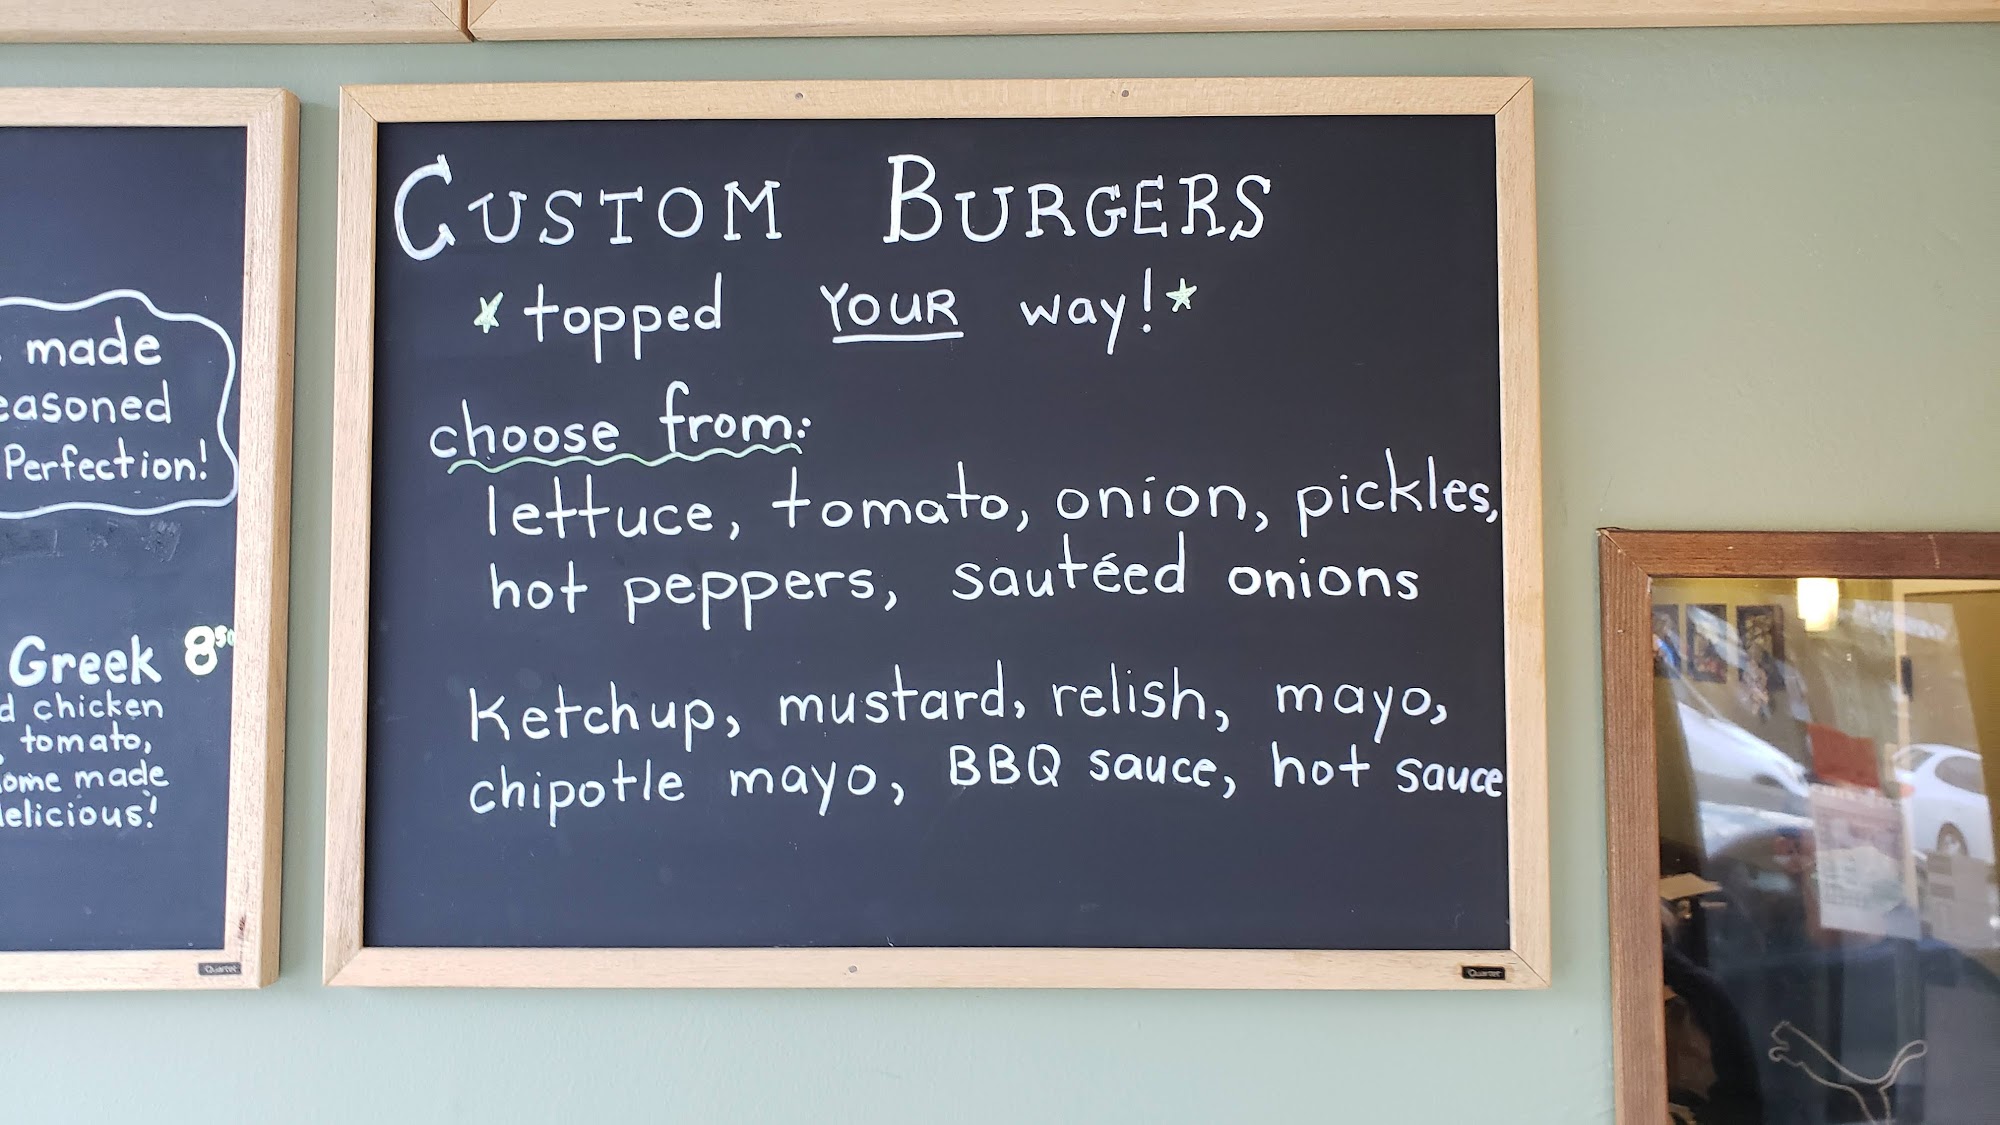 made
easoned
Perfection!
Greek 8⁵⁰
d chicken
tomato,
ome made
elicious!
Quartet
CUSTOM BURGERS
*topped YOUR way!*
choose from:
lettuce, tomato, onion, pickles,
hot peppers, sautéed onions
Ketchup, mustard, relish, mayo,
chipotle mayo, BBQ sauce, hot sauce
Quartet